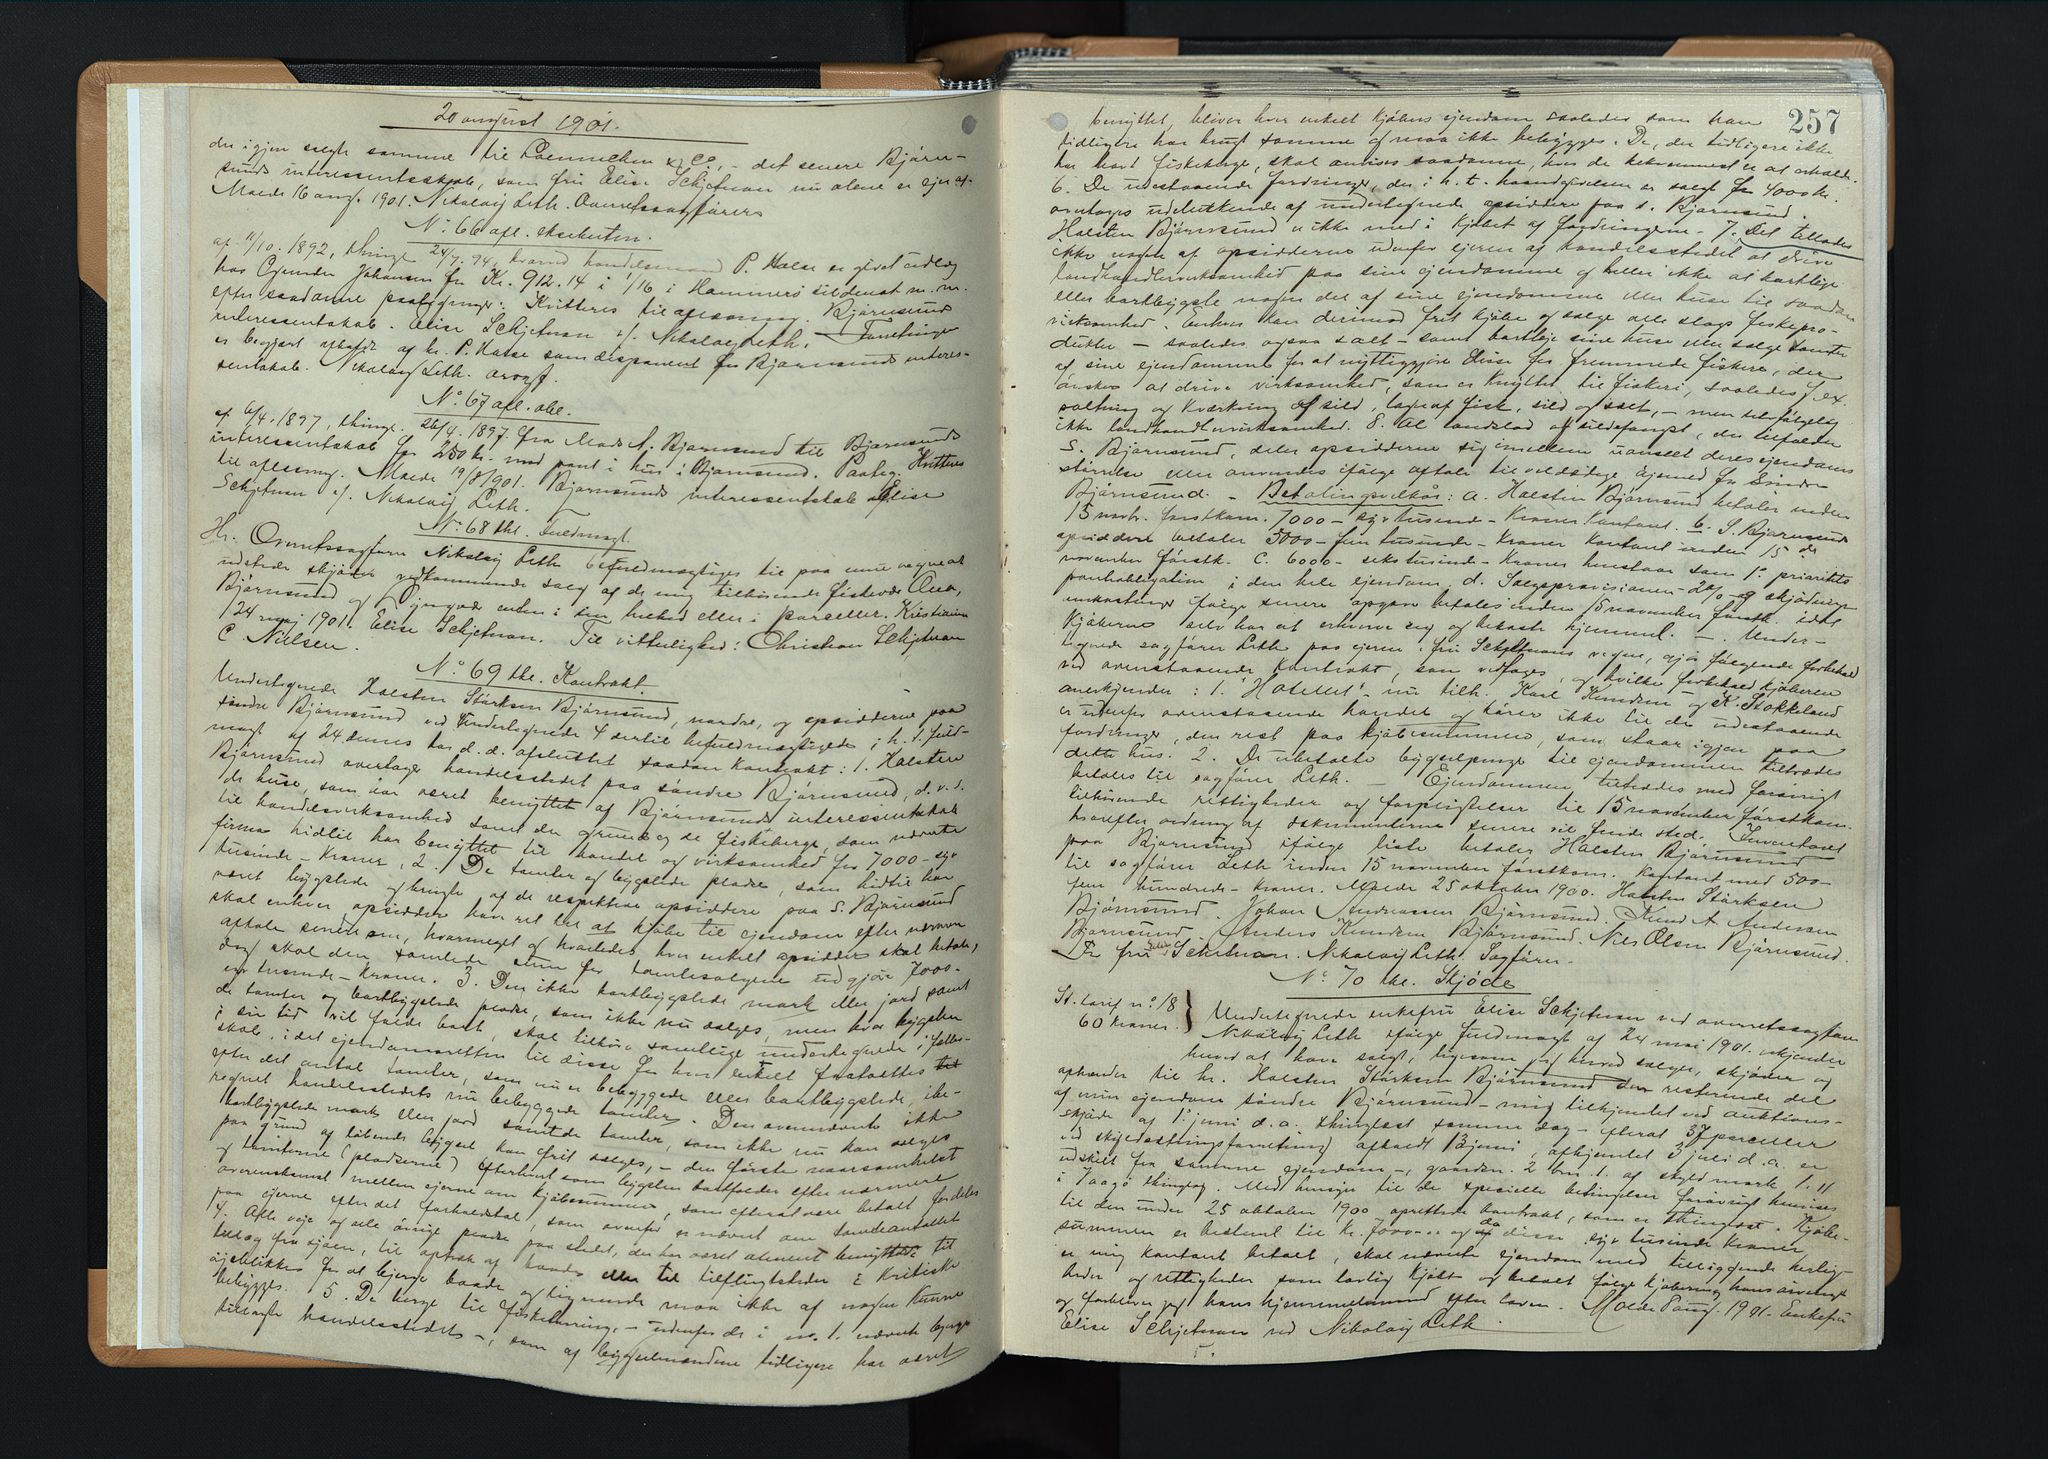 20 august 1901.
der igjen solgte samme til Loennechen & Co, – det senere Bjørn-
sunds interessentskab, som fru Elise Schjetnan nu alene er ejer af.
Molde 16 aug. 1901. Nikolaij Leth. Overretssagfører
No. 66 afl. eksekution.
af 11/10. 1892, thingl. 24/7. 94, hvorved handelsmand P. Halse er givet udlæg
hos Gjendor Johansen for Kr. 912.14 i 1/16 i Hammerö m. m.
efter saadanne paategninger: Kvitteres til aflæsning. Bjørnsunds
interessentskab. Elise Schjetnan v/ Nikolaij Leth. Foretningen
er begjært afholdt af hr. P. Halse som disponent for Bjørnsunds interes-
sentskab. Nikolaij Leth. orsagf.
No. 67 afl. obl.
af 6/4. 1897, thingl. 26/4. 1897 fra Mads A. Bjørnsund til Bjørnsunds
interessentskab for 250 kr. med pant i hus i Bjørnsund. Paateg. Kvitteres
til aflæsning. Molde 19/8 1901. Bjørnsunds interessentskab v/ Elise
Schjetnan v/ Nikolaij Leth.
No. 68 thl. Fuldmagt.
Hr. Overretssagfører Nikolaij Leth befuldmægtiges til paa mine vegne at
udstede skjøder vedkommende salg af de mig tilhörende fiskevær Ona,
Bjørnsund og enten i sin helhed eller i parseller. Kristiania
24 maj 1901. Elise Schjetnan. Til vitterlighed: Christian Schjetnan
C Nielsen.
No. 69 thl. Kontrakt.
Undertegnede Halsten Störksen Bjørnsund, nordre, og opsidderne paa
söndre Bjørnsund ved undertegnede 4 dertil befuldmægtigede i h. t. fuld-
magt af 24 dennes har d. d. afsluttet saadan kontrakt: 1. Halsten
Bjørnsund overtager handelsstedet paa söndre Bjørnsund, d. v. s.
de huse, som har været benyttet af Bjørnsunds interessentskab
til handelsvirksomhed samt den grund og de fiskeberge, som nævnte
firma hidtil har benyttet til handel og virksomhed for 7000 – syv
tusinde – Kroner. 2. De tomter og bygslede pladse, som hidtil har
været bygslede og brugte af de respektive opsiddere paa S. Bjørnsund
skal enhver opsidder have ret til at kjøbe til ejendom efter nærmere
aftale sendesom, hvormeget og hvorledes hver enkelt opsidder skal betale,
dog skal den samlede sum for tomtesalgene udgjøre 7000 –
syv tusinde – Kroner. 3. Den ikke bortbygslede mark eller jord samt
de tomter og bortbygslede pladse, som ikke nu sælges, men hvor bygselen
i sin tid vil falde bort, skal tilhøre samtlige undertegnede i fælles-
skab, i det ejendomsretten til disse for hver enkelt fastsættes
efter det antal tomter, som nu er bebyggede eller bortbygslede, ibe-
regnet handelsstedets nu bebyggede tomter. Den ovennævnte ikke
bortbygslede mark eller jord samt de tomter, som ikke nu kan sælges
paa grund af löbende bygsel kan frit sælges, – den förste naarsomhelst
og tomterne (pladserne) efterhvert som bygslen bortfalder efter nærmere
overenskomst mellem ejerne om kjøbesummen, som efterat være betalt fordeles
paa ejerne efter det forholdstal, som ovenfor er nævnt om tomteantallet
4. Alle veje og alle övrige pladse paa stedet, der har været alment benyttede til
tillæg fra sjøen, til optræk af baade eller til tilflugtsteder i kritiske
øjeblikke for at bjerge baade og lignende maa ikke af nogen kunne
bebygges. 5. De berge til fisketørring, – udenfor de i no. 1. nævnte berge
tillagte handelsstedet –, som af bygselmændene tidligere har været
257
benyttet, bliver hver enkelt kjøbers ejendom saaledes som han
tidligere har brugt samme og maa ikke bebygges. De, der tidligere ikke
har havt fiskeberge, skal anvises saadanne, hvis de bekvemmest er at erholde.
6. De udestaaende fordringer, der i h. t. haandgivelsen er solgt for 4000 kr.
overtages udelukkende af undertegnede opsiddere paa s. Bjørnsund.
Halsten Bjørnsund er ikke med i kjøbet af fordringerne. – 7. Det tillades
ikke nogen af opsidderne udenfor ejeren af handelsstedet at drive
landhandlervirksomhed paa sine ejendomme og heller ikke at bortleje
eller bortbygsle nogen del af sine ejendomme eller huse til saadan
virksomhed. Enhver kan derimod frit kjøbe og sælge alle slags fiskepro-
dukter – saaledes ogsaa salt – samt bortleje sine huse eller sælge tomter
af sine ejendomme for at nyttiggjøre disse for fremmede fiskere, der
ønsker at drive virksomhed, som er knyttet til fiskeri, saaledes f. ex.
saltning og kværkning af sild, lage af fisk, sild og salt, – men selvfølgelig
ikke landhandlervirksomhed. 8. Al landslod af sildefangst, der tilfalder
S. Bjørnsund, deles opsidderne sig imellem uanset deres ejendoms
størrelse eller anvendes ifølge aftale til veldædige øjemed for Söndre
Bjørnsund. – Betalingsvilkår: a. Halsten Bjørnsund betaler inden
15 novbr. førstkom. 7000 – syvtusinde – Kroner kontant. b. S. Bjørnsunds
opsiddere betaler 5000 – fem tusinde – Kroner kontant inden 15 de
november førstk. c. 6000 – sekstusinde – Kroner henstaar som 1ste prioritets
pantobligation i den hele ejendom. d. Salgsprovisionen 2% og skjødnings-
omkostninger ifølge senere opgave betales inden 15 november førstk. idet
Kjøberne selv har at erhverve sig og bekoste hjemmel. –. Under-
tegnede sagfører Leth paa ejeren fru Schjetnans vegne, gjør følgende forbehold
ved ovenstaaende kontrakt, som vedtages, og hvilke forbehold kjøberen
anerkjender: 1. "Hotellet" – nu tilh. Karl Knudsen og K. Stokkeland
er udenfor ovenstaaende handel og hører ikke til de udestaaende
fordringer, den rest paa kjøbesummen, som staar igjen paa
dette hus. 2. De ubetalte bygselpenge til ejendommen tiltrædes
betales til sagfører Leth. – Ejendommen tiltrædes med forøvrigt
tilhørende rettigheder og forpligtelser til 15 november førstkom.
hvorefter ordning af dokumenterne senere vil finde sted. Inventaret
paa Bjørnsund ifølge liste betaler Halsten Bjørnsund
til sagfører Leth inden 15 november førstkom. kontant med 500 –
fem hundrede – Kroner. Molde 25 oktober 1900. Halsten Störksen
Bjørnsund. Johan Andreassen Bjørnsund. Knud A. Andersen
Bjørnsund. Anders Knudsen Bjørnsund. Nils Olsen Bjørnsund.
For fru Elise Schjetnan. Nikolaij Leth. Sagfører.
No. 70 thl. Skjøde
St. tarif no. 18
60 kroner.
Undertegnede enkefru Elise Schjetnan ved overretssagfører
Nikolaij Leth ifølge fuldmagt af 24 mai 1901 erkjender
herved at have solgt, ligesom jeg herved sælger, skjøder og
afhænder til hr. Halsten Störksen Bjørnsund den resterende del
af min ejendom söndre Bjørnsund – mig tilhjemlet ved auktions-
skjøde af 1ste juni d. a. thinglæst samme dag – efterat 37 parceller
ved skyldddelingsforretning afholdt 13 juni, afhjemlet 3 juli d. a. er
udskilt fra samme ejendom –, gaardsn. 2 brn. 1. af skyld mark 1.11
i Vaagø thinglag. Med hensyn til de specielle betingelser forøvrigt henvises
til den under 25 oktober 1900 oprettede kontrakt, som er thinglæst. Kjøbe-
summen er bestemt til kr. 7000.00 og da disse syv tusinde kroner
er mig kontant betalt, skal nævnte ejendom med tilliggende herlig-
heder og rettigheder som lovlig kjøbt og betalt følge kjøberen
og forbliver jeg hans hjemmelsmand efter loven. Molde aug. 1901. Enkefru
Elise Schjetnan ved Nikolaij Leth.